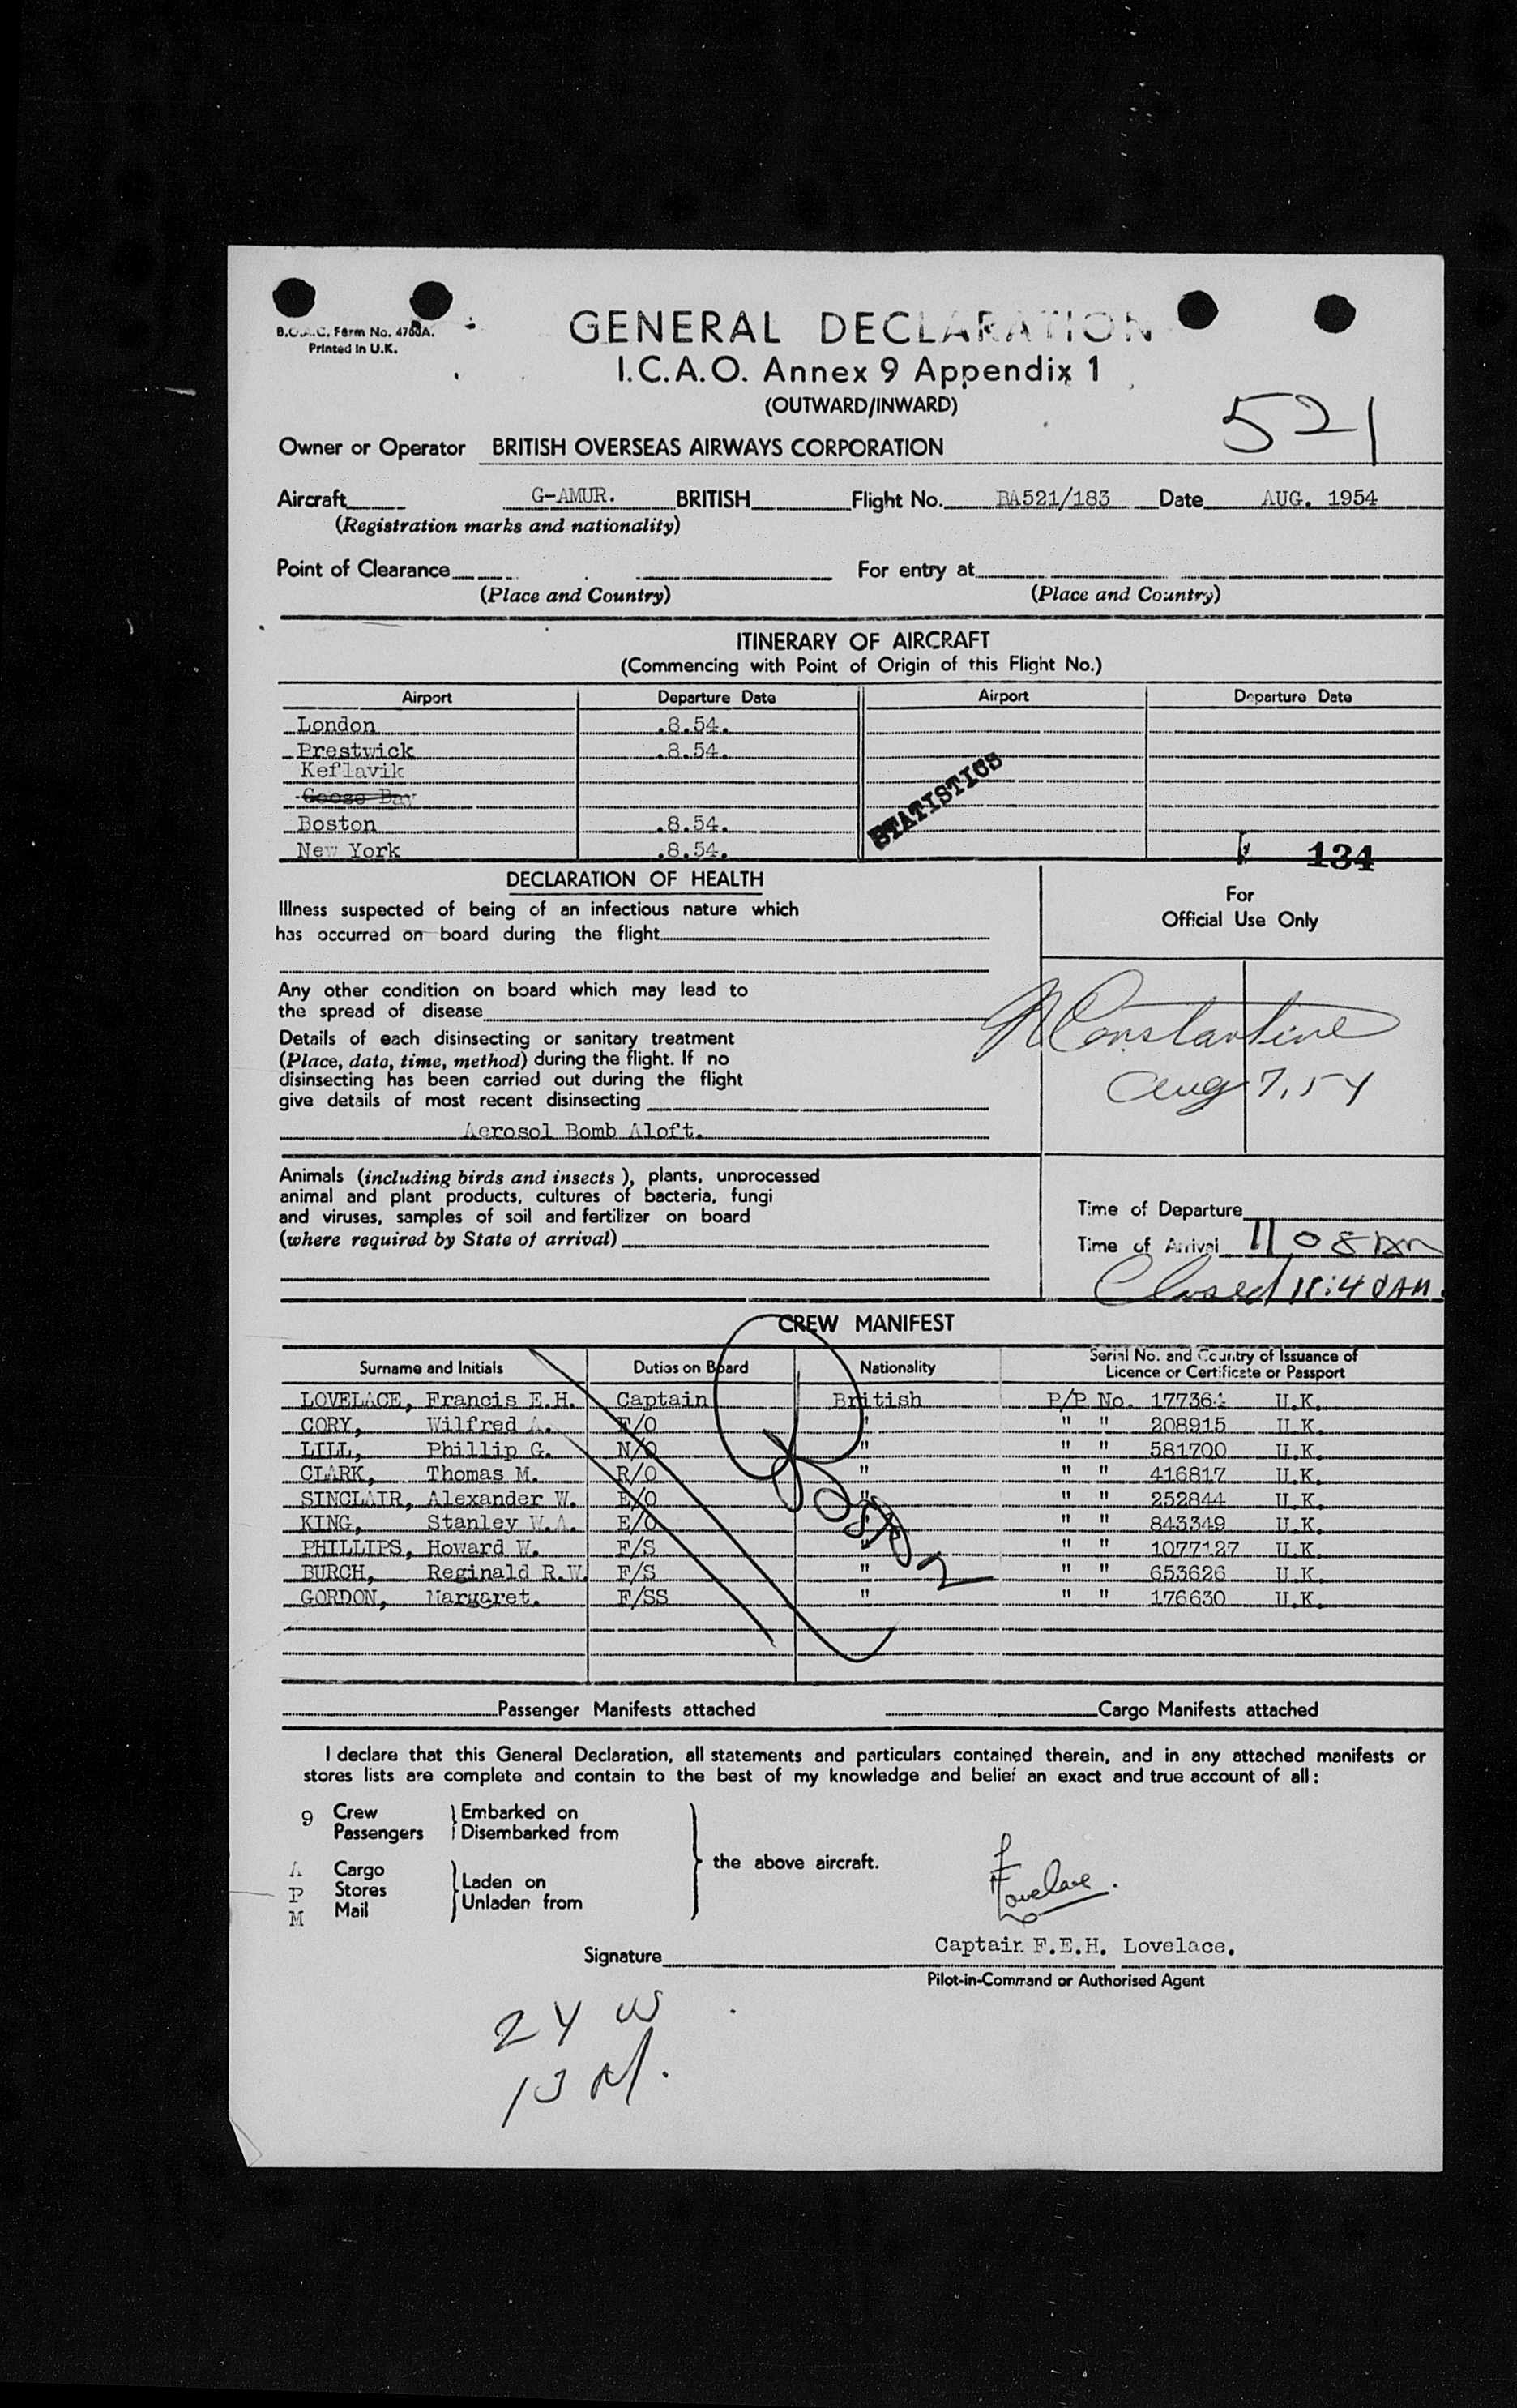 B.O.A.C. Form No. 4760A.
Printed in U.K.
GENERAL DECLARATION
I.C.A.O. Annex 9 Appendix 1
(OUTWARD/INWARD)
521
Owner or Operator BRITISH OVERSEAS AIRWAYS CORPORATION
Aircraft G-AMUR. BRITISH Flight No. BA521/183 Date AUG. 1954
(Registration marks and nationality)
Point of Clearance For entry at
(Place and Country) (Place and Country)
ITINERARY OF AIRCRAFT
(Commencing with Point of Origin of this Flight No.)
Airport Departure Date Airport Departure Date
London .8.54.
Prestwick .8.54.
Keflavik
Goose Bay
Boston .8.54.
New York .8.54.
STATISTICS
134
DECLARATION OF HEALTH
Illness suspected of being of an infectious nature which
has occurred on board during the flight
Any other condition on board which may lead to
the spread of disease
Details of each disinsecting or sanitary treatment
(Place, date, time, method) during the flight. If no
disinsecting has been carried out during the flight
give details of most recent disinsecting
Aerosol Bomb Aloft.
Animals (including birds and insects), plants, unprocessed
animal and plant products, cultures of bacteria, fungi
and viruses, samples of soil and fertilizer on board
(where required by State of arrival)
For
Official Use Only
N Constantine
Aug 7, 54
Time of Departure
Time of Arrival 11 08 AM
Closed 11:40 AM.
CREW MANIFEST
Surname and Initials Duties on Board Nationality Serial No. and Country of Issuance of
Licence or Certificate or Passport
LOVELACE, Francis E.H. Captain British P/P No. 177364 U.K.
CORY, Wilfred A. F/O " " " 208915 U.K.
LILL, Phillip G. N/O " " " 581700 U.K.
CLARK, Thomas M. R/O " " " 416817 U.K.
SINCLAIR, Alexander W. E/O " " " 252844 U.K.
KING, Stanley W.A. E/O " " " 843349 U.K.
PHILLIPS, Howard W. F/S " " " 1077127 U.K.
BURCH, Reginald R.W. F/S " " " 653626 U.K.
GORDON, Margaret. F/SS " " " 176630 U.K.
Boston
Passenger Manifests attached Cargo Manifests attached
I declare that this General Declaration, all statements and particulars contained therein, and in any attached manifests or
stores lists are complete and contain to the best of my knowledge and belief an exact and true account of all:
9 Crew Embarked on
Passengers Disembarked from
the above aircraft.
A Cargo Laden on
P Stores Unladen from
M Mail
F Lovelace.
Captain F.E.H. Lovelace.
Signature
Pilot-in-Command or Authorised Agent
24 W
13 M.